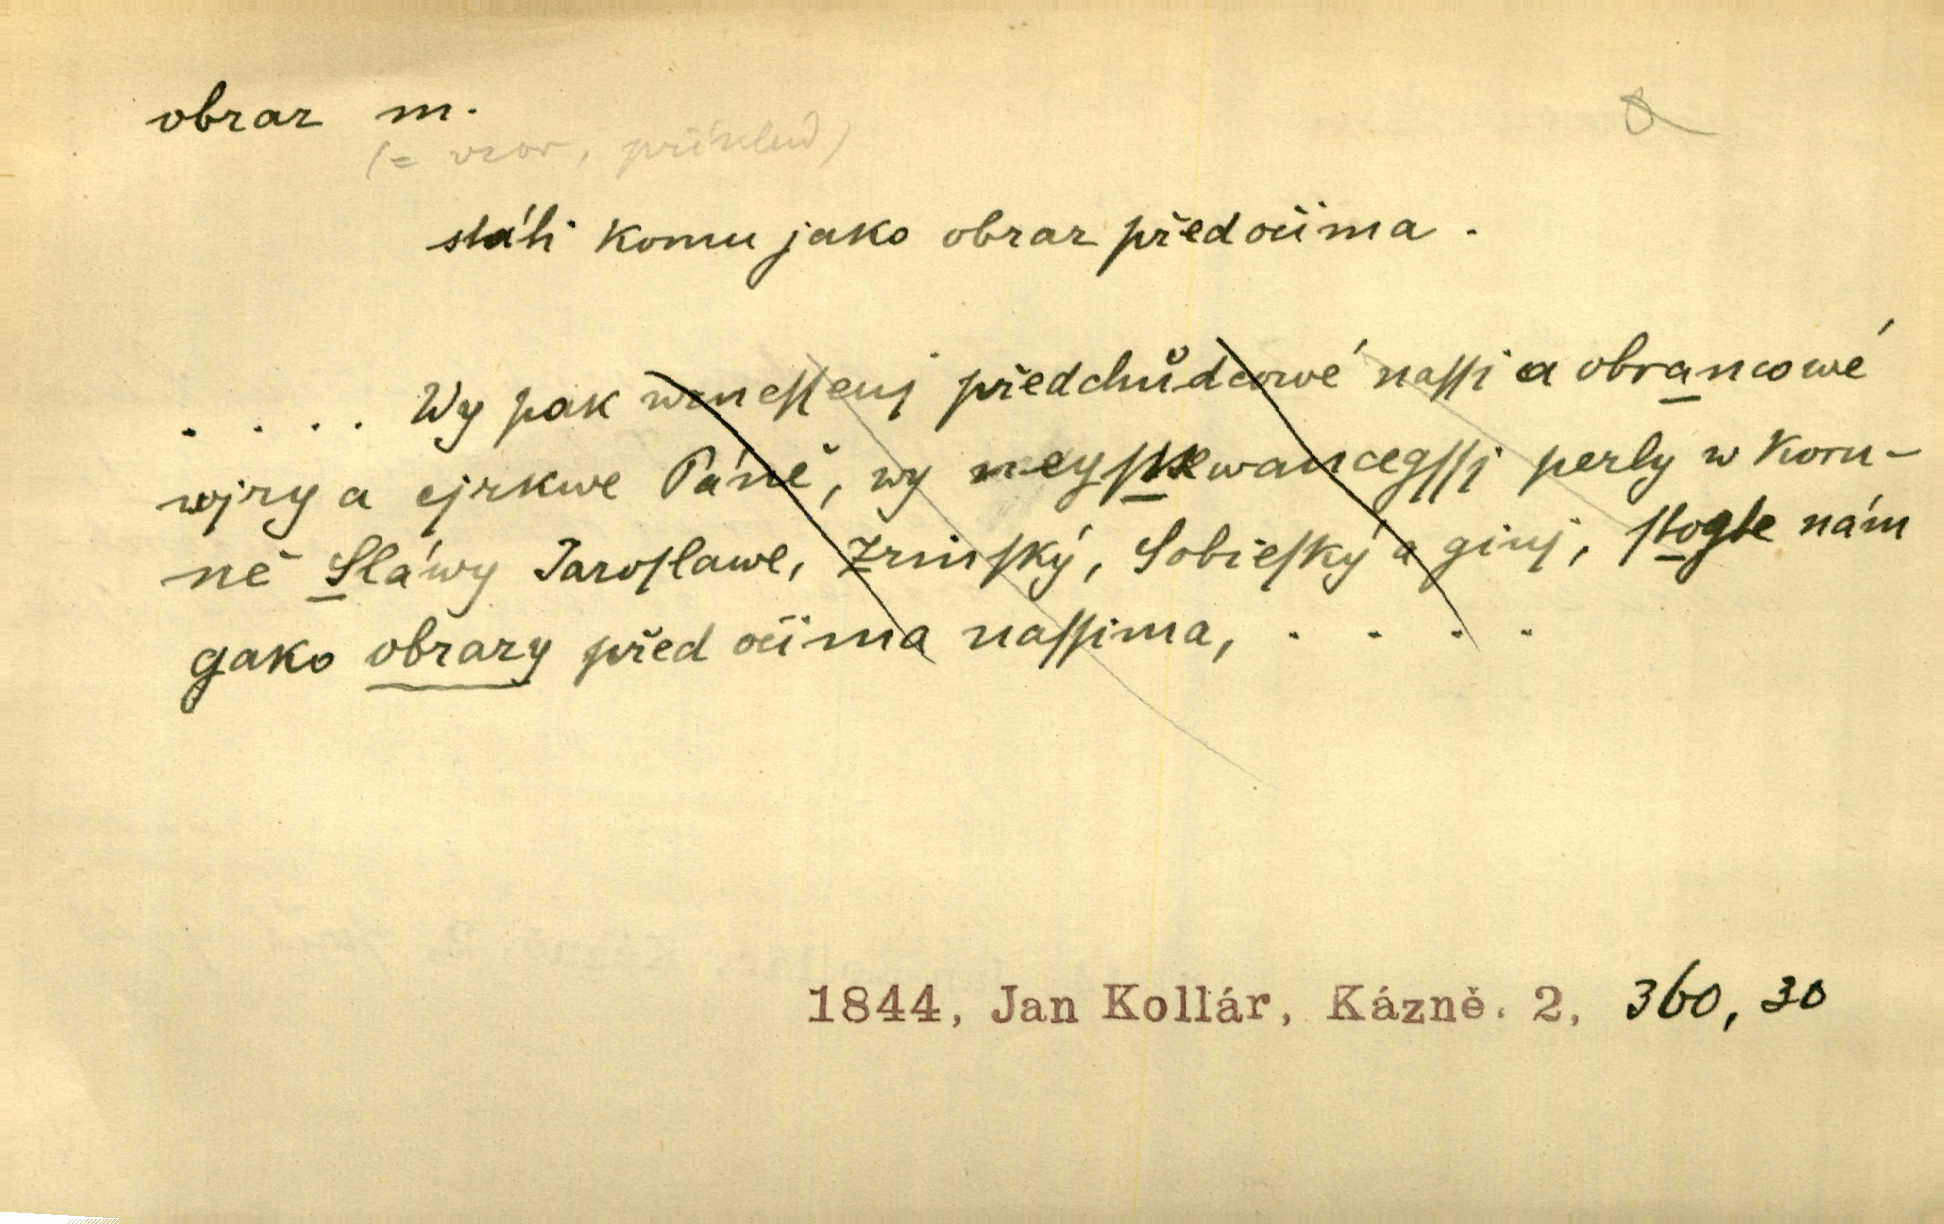 obraz m.
(= vzor, příklad)
státi komu jako obraz před očima.
. . . . Wy pak wznessenj předchůdcowé nassj a obrancowé
wjry a cjrkwe Páně, wy neyskwaucegssj perly w Koru-
ně Sláwy Jaroslawe, Zrinský, Sobieský a ginj, stogte nám
gako obrazy před očima nassima, . . . .
1844, Jan Kollár, Kázně. 2, 360, 30